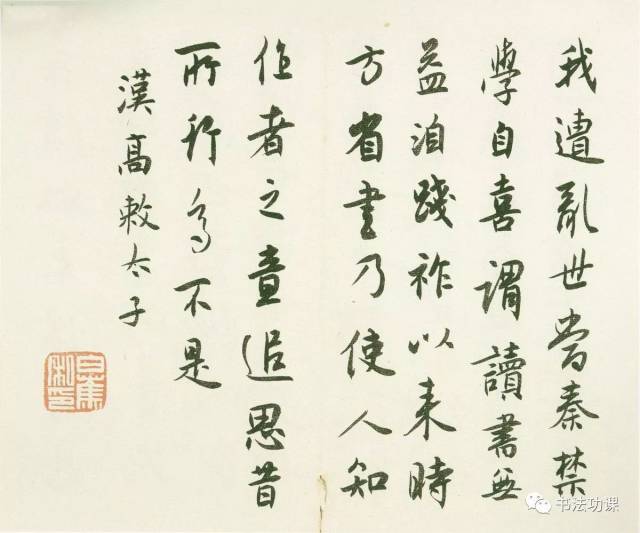 我遭亂世當秦禁
學自喜謂讀書無
益洎踐祚以来時
方省書乃使人知
作者之意追思昔
所行多不是
漢高敕太子
白蕉
书法功课